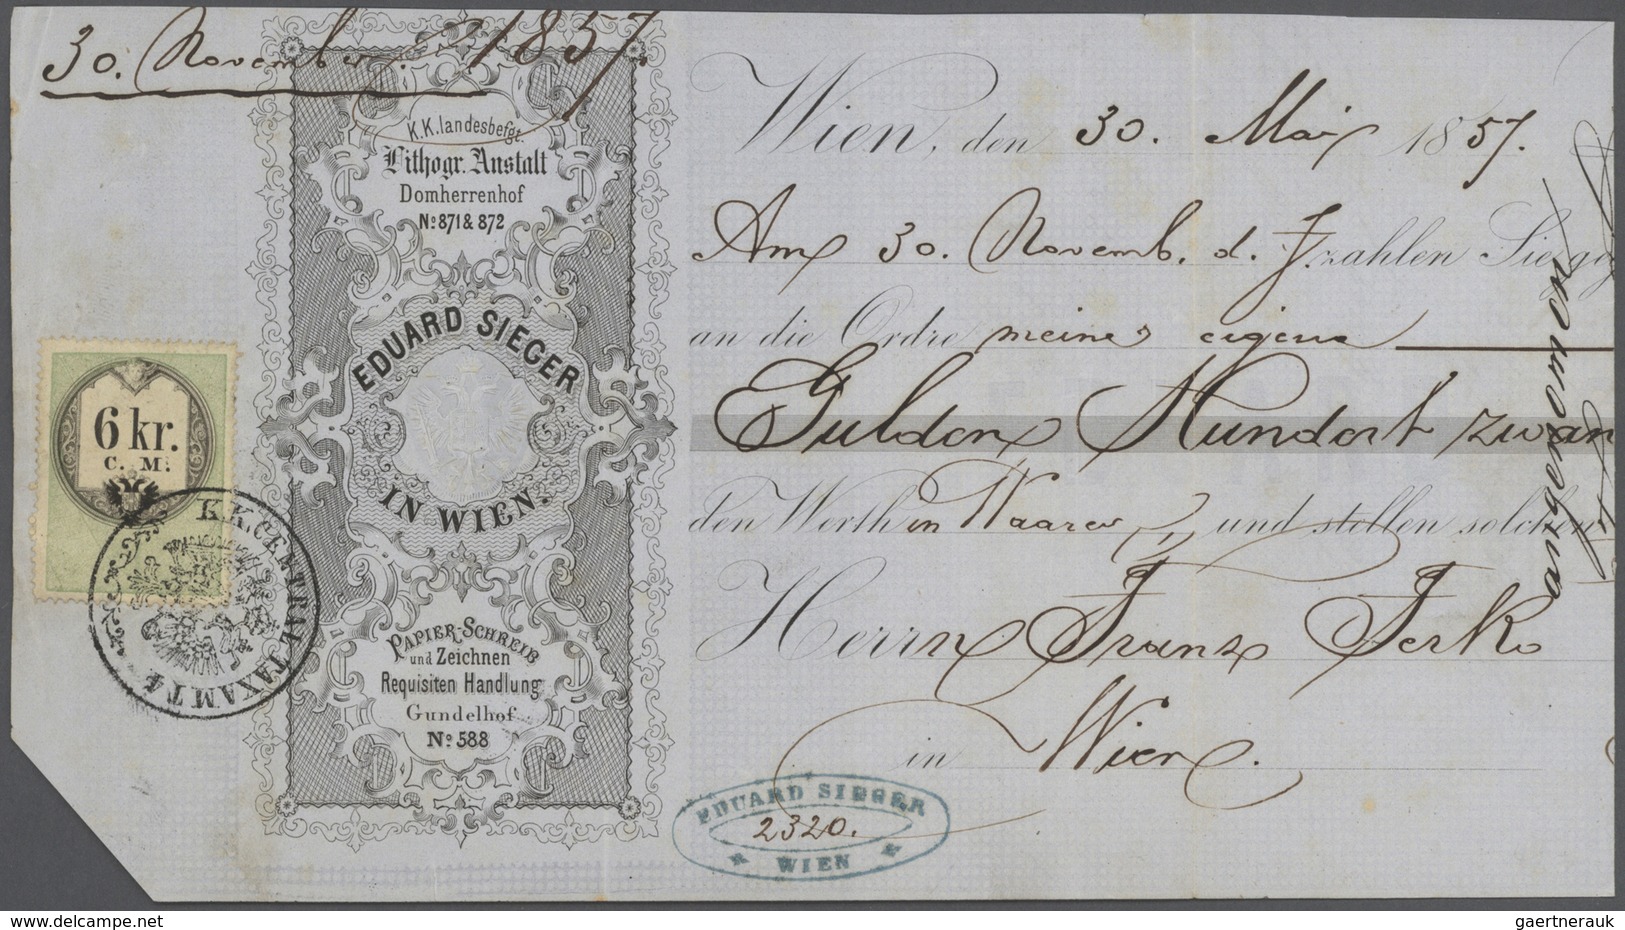 30. November 1857.
K.K. landesbefgt.
Lithogr. Anstalt
Domherrenhof
No 871 & 872
EDUARD SIEGER
IN WIEN.
PAPIER-SCHREIB
und Zeichnen
Requisiten Handlung
Gundelhof
No 588
6 kr.
C. M.
K.K. CENTRAL TAXAMT
Wien, den 30. Mai 1857.
Am 30. Novemb. d. J. zahlen Sie
an die Ordre meine eigene
Gulden Hundert zwan
den Werth in Waaren und stellen solchen
Herrn Franz
in Wien.
EDUARD SIEGER
2320.
WIEN
delcampe.net
gaertnerauk